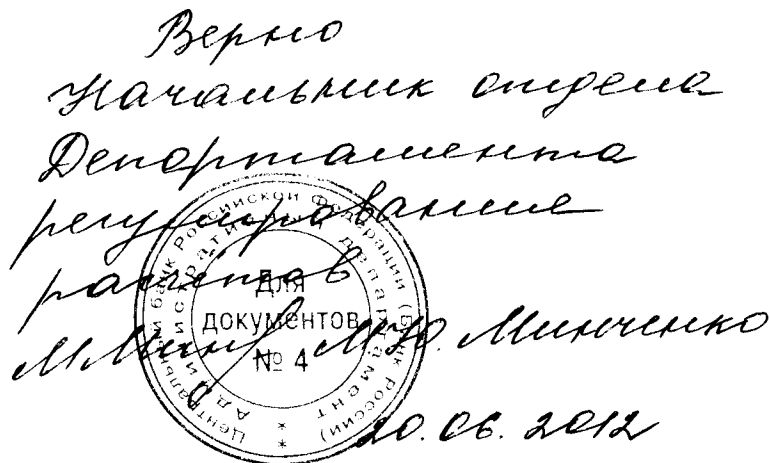 Верно
Начальник отдела
Департамента
регулирования
расчетов
М.Ю. Минченко
20.06.2012
Центральный банк Российской Федерации (Банк России)
Административный департамент
Для
документов
№ 4